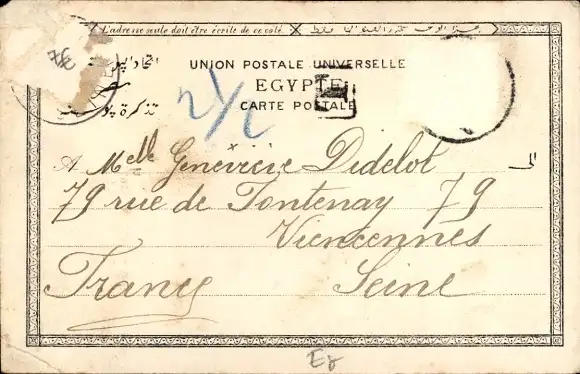 L'adresse seule doit être écrite de ce coté.
UNION POSTALE UNIVERSELLE
EGYPTE
CARTE POSTALE
مصر
تذكرة بوستة
A Melle Geneviève Didelot
79 rue de Fontenay 79
Viencennes
France Seine